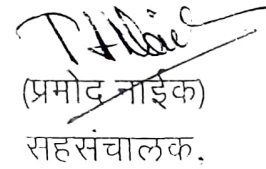 (प्रमोद नाईक)
सहसंचालक.